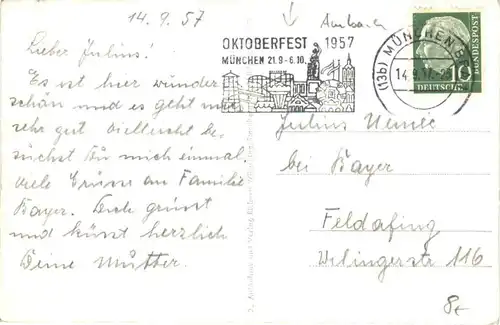 14.9.57
Lieber Julius!
Es ist hier wunder
schön und es geht mir
sehr gut vielleicht be-
suchst Du mich einmal.
viele Grüsse an Familie
Bayer. Dich grüsst
und küsst herzlich
Deine Mutter.
OKTOBERFEST 1957
MÜNCHEN 21.9-6.10.
(13b) MÜNCHEN
14.9.57
10
DEUTSCHE
BUNDESPOST
Julius
bei Bayer
Feldafing
116